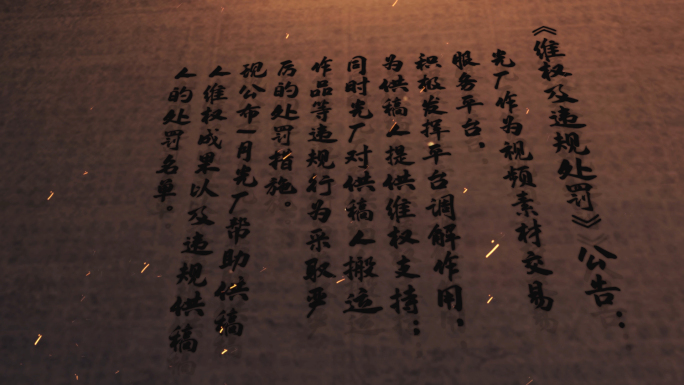 《维权及违规处罚》公告：
光厂作为视频素材交易
服务平台，
积极发挥平台调解作用，
为供稿人提供维权支持；
同时光厂对供稿人搬运
作品等违规行为采取严
厉的处罚措施。
现公布一月光厂帮助供稿
人维权成果以及违规供稿
人的处罚名单。